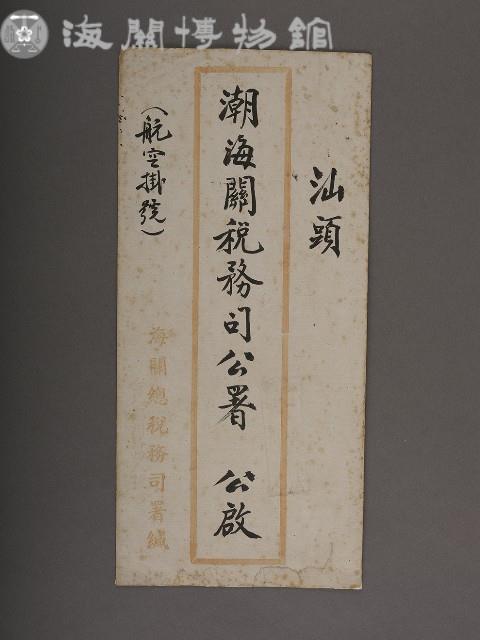 海關博物館
汕頭
潮海關稅務司公署 公啟
（航空掛號）
海關總稅務司署緘